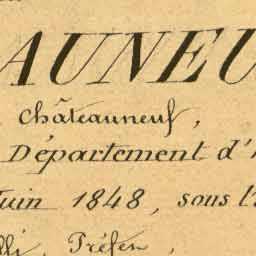 AUNEU
Châteauneuf,
Département d'
Juin 1848, sous l'
Préfet,